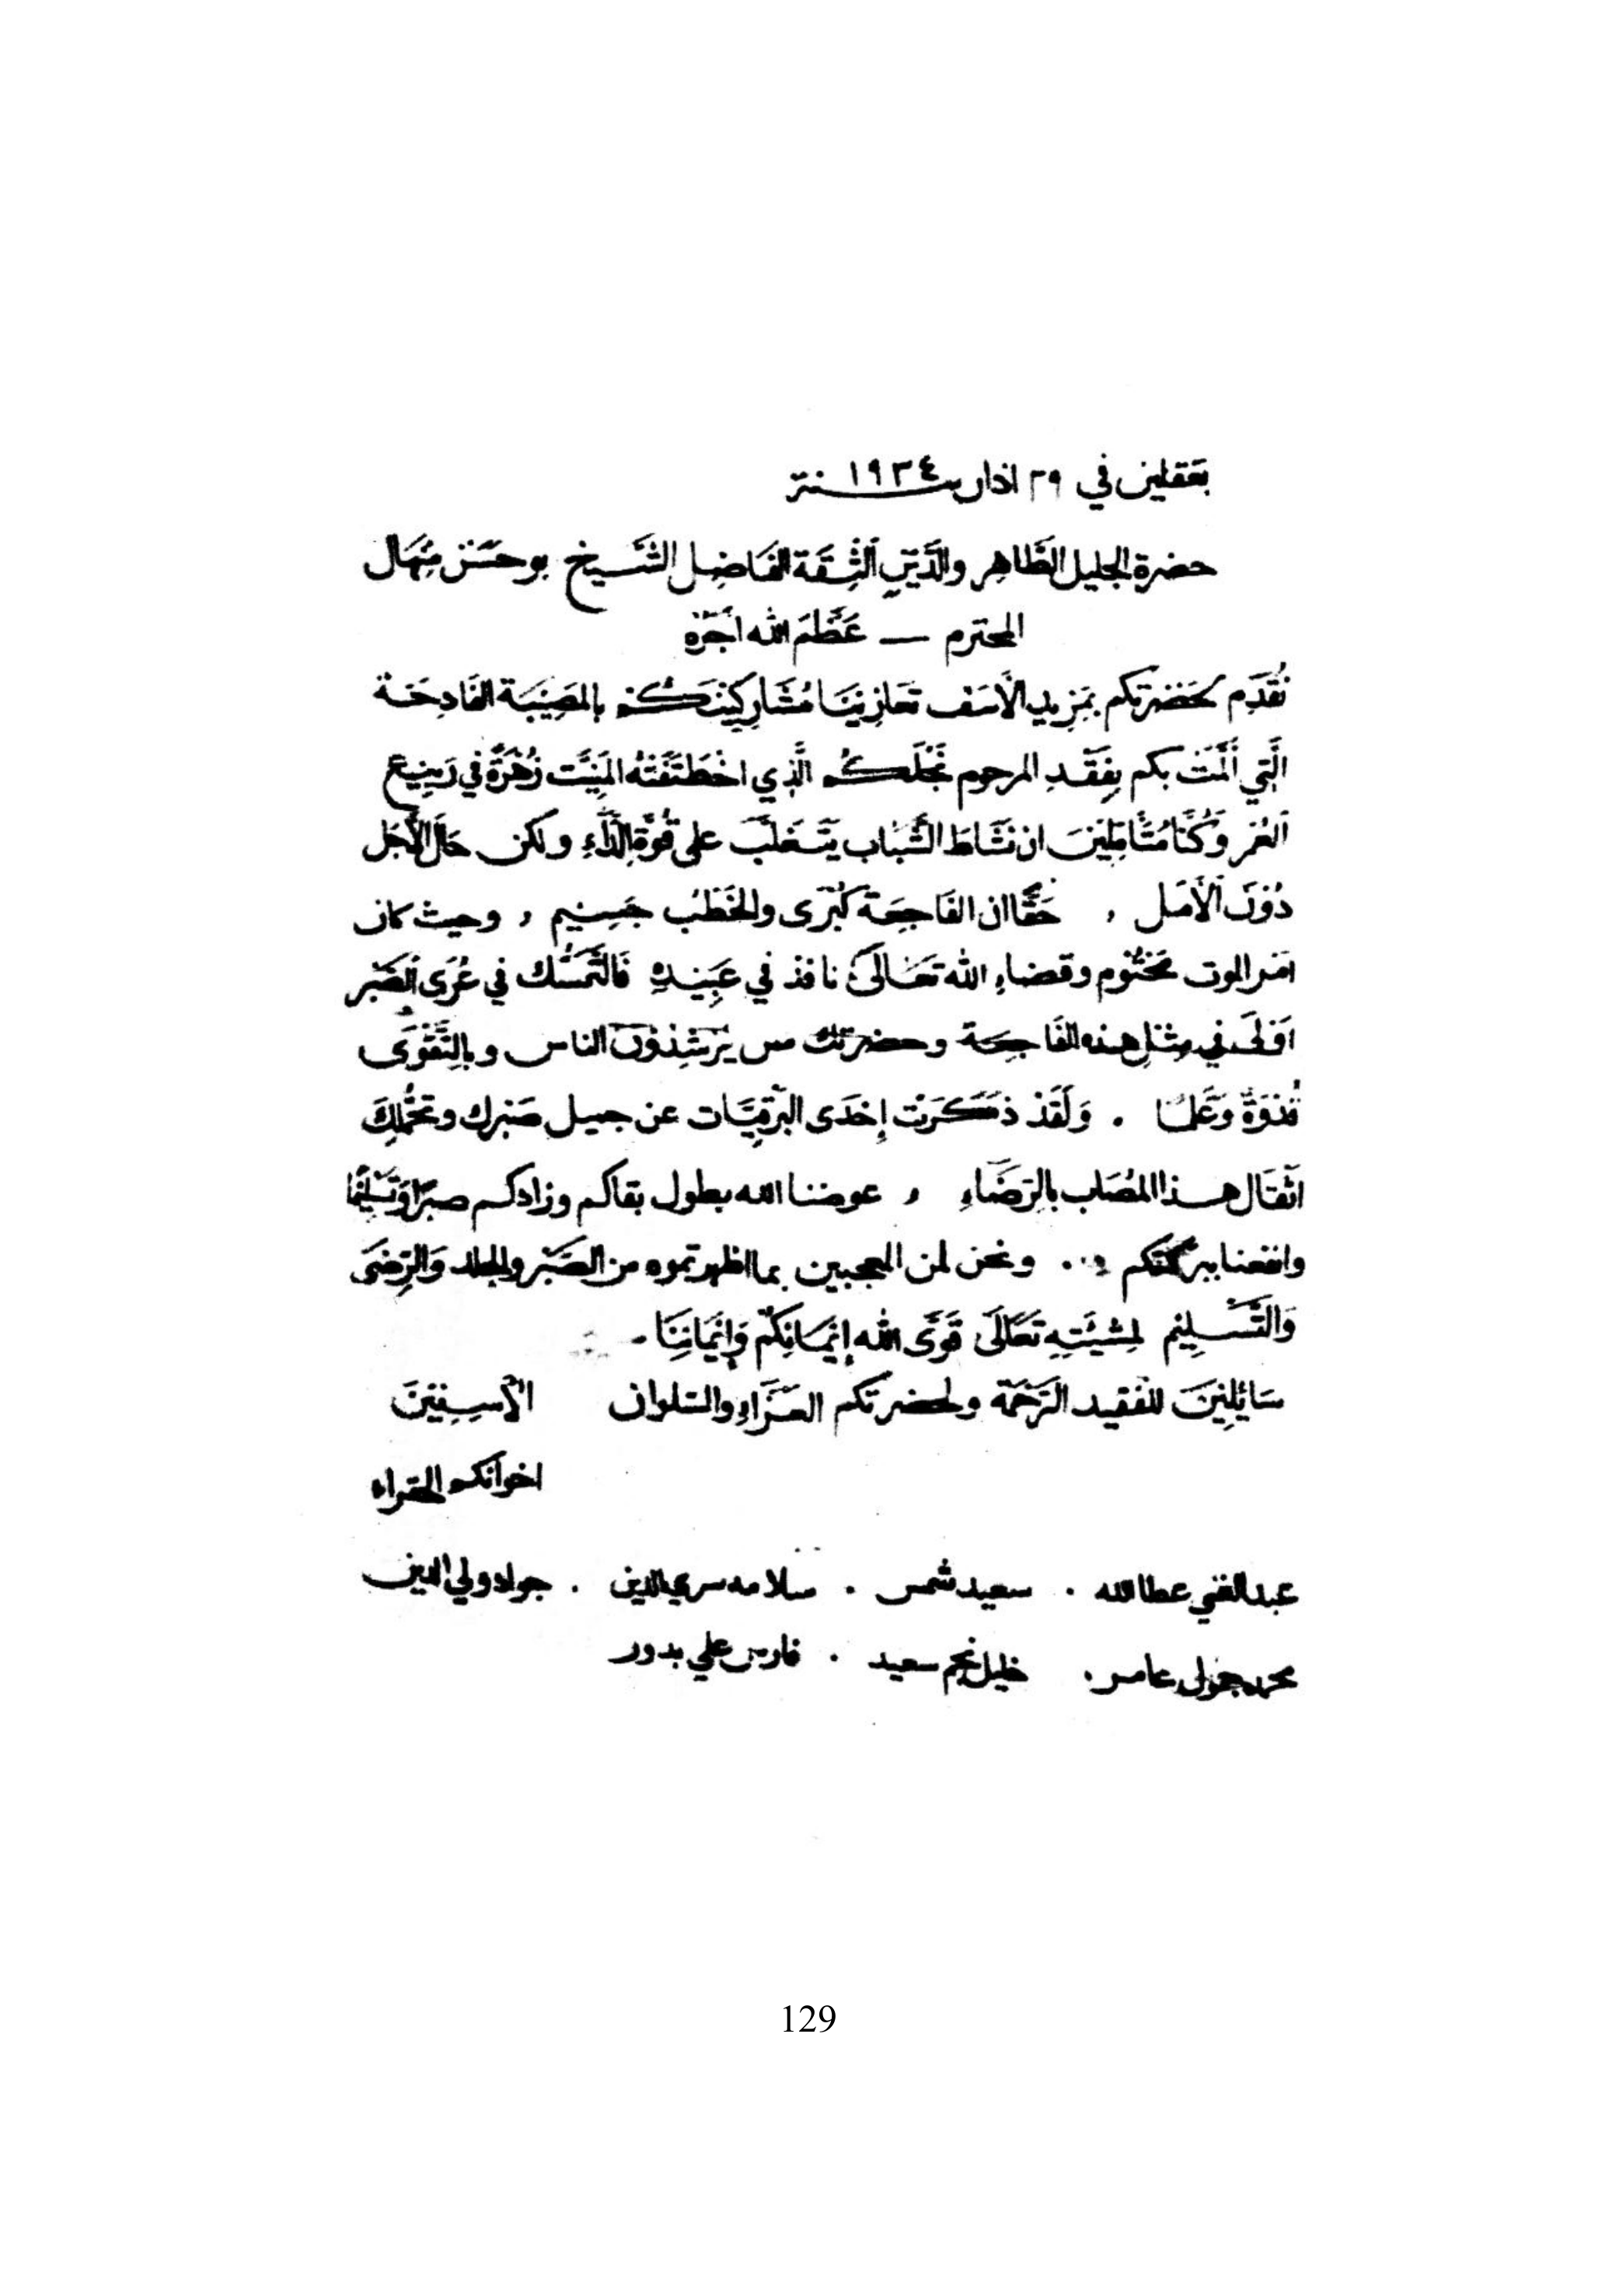 بعقلين في ٢٩ اذار سنة ١٩٣٤
حضرة الجليل الطَّاهِر والدَّيِّنِ الثِقَة الفَاضِل الشَيخ بو حسَن مِنهَال
المحترم — عَظَّمَ الله أجرَهُ
نُقَدِّم لحَضرتكم بمَزِيدِ الأسَف تعَازينَا مُشَارِكِينَكُم بالمصِيبَة الفَادِحَة
الَّتي ألمَّت بكم بِفَقدِ المرحوم نَجْلَكُم الَّذِي اختَطَفَتهُ المَنِيَّت زَهْرَةً في رَبيع
العُمْر وَكُنَّا مُتَأَمِّلِينَ ان نشَاطَ الشَّبَاب يَتَغَلَّبَ على قُوَّةِ الدَّاءِ ولكن حَالَ الأَجَل
دُوْنَ الأَمَل ، حَقًّا ان الفَاجِعَة كُبْرَى والخَطْبُ جَسِيم ، وحيث كان
امر الموت مَحْتُوم وقضاءِ الله تعَالَى نافذ في عَبِيدِهِ فَالتَّمَسُّك في عُرَى الصَّبْر
اَوْلَى في مِثْلِ هذه الفَاجِعَة وحضرتك من يُرْشِدُوْنَ الناس وبالتَّقْوَى
قُدْوَةً وَعَلَمًا . وَلَقَدْ ذَكَرَت إحْدَى البَرْقِيَّات عن جميل صَبْرك وتحَمُّلِكَ
اثقَال هذا المُصَاب بالرَضَاءِ ، عوضنا الله بطول بقاكم وزادكم صبرًا وَتَسْلِيمًا
وانفعنا ببركتكم .. ونحن لمن المعجبين بما اظهرتموه من الصَّبْر والجلد وَالرِّضَى
وَالتَّسْلِيم لمشيئَتِهِ تعَالَى قَوَّى الله إيمَانِكُم وَإيمَانِنَا -
سَائِلِينَ للفقيد الرَّحْمَة ولحضرتكم العَزَاءِ والسلوان الآسِفِينَ
اخوانكم الفقراء
عبد الغني عطا الله . سعيد شمس . سلامه سري الدين . جواد ولي الدين
محمد عامر . خليل نجم سعيد . فارس علي بدور
129